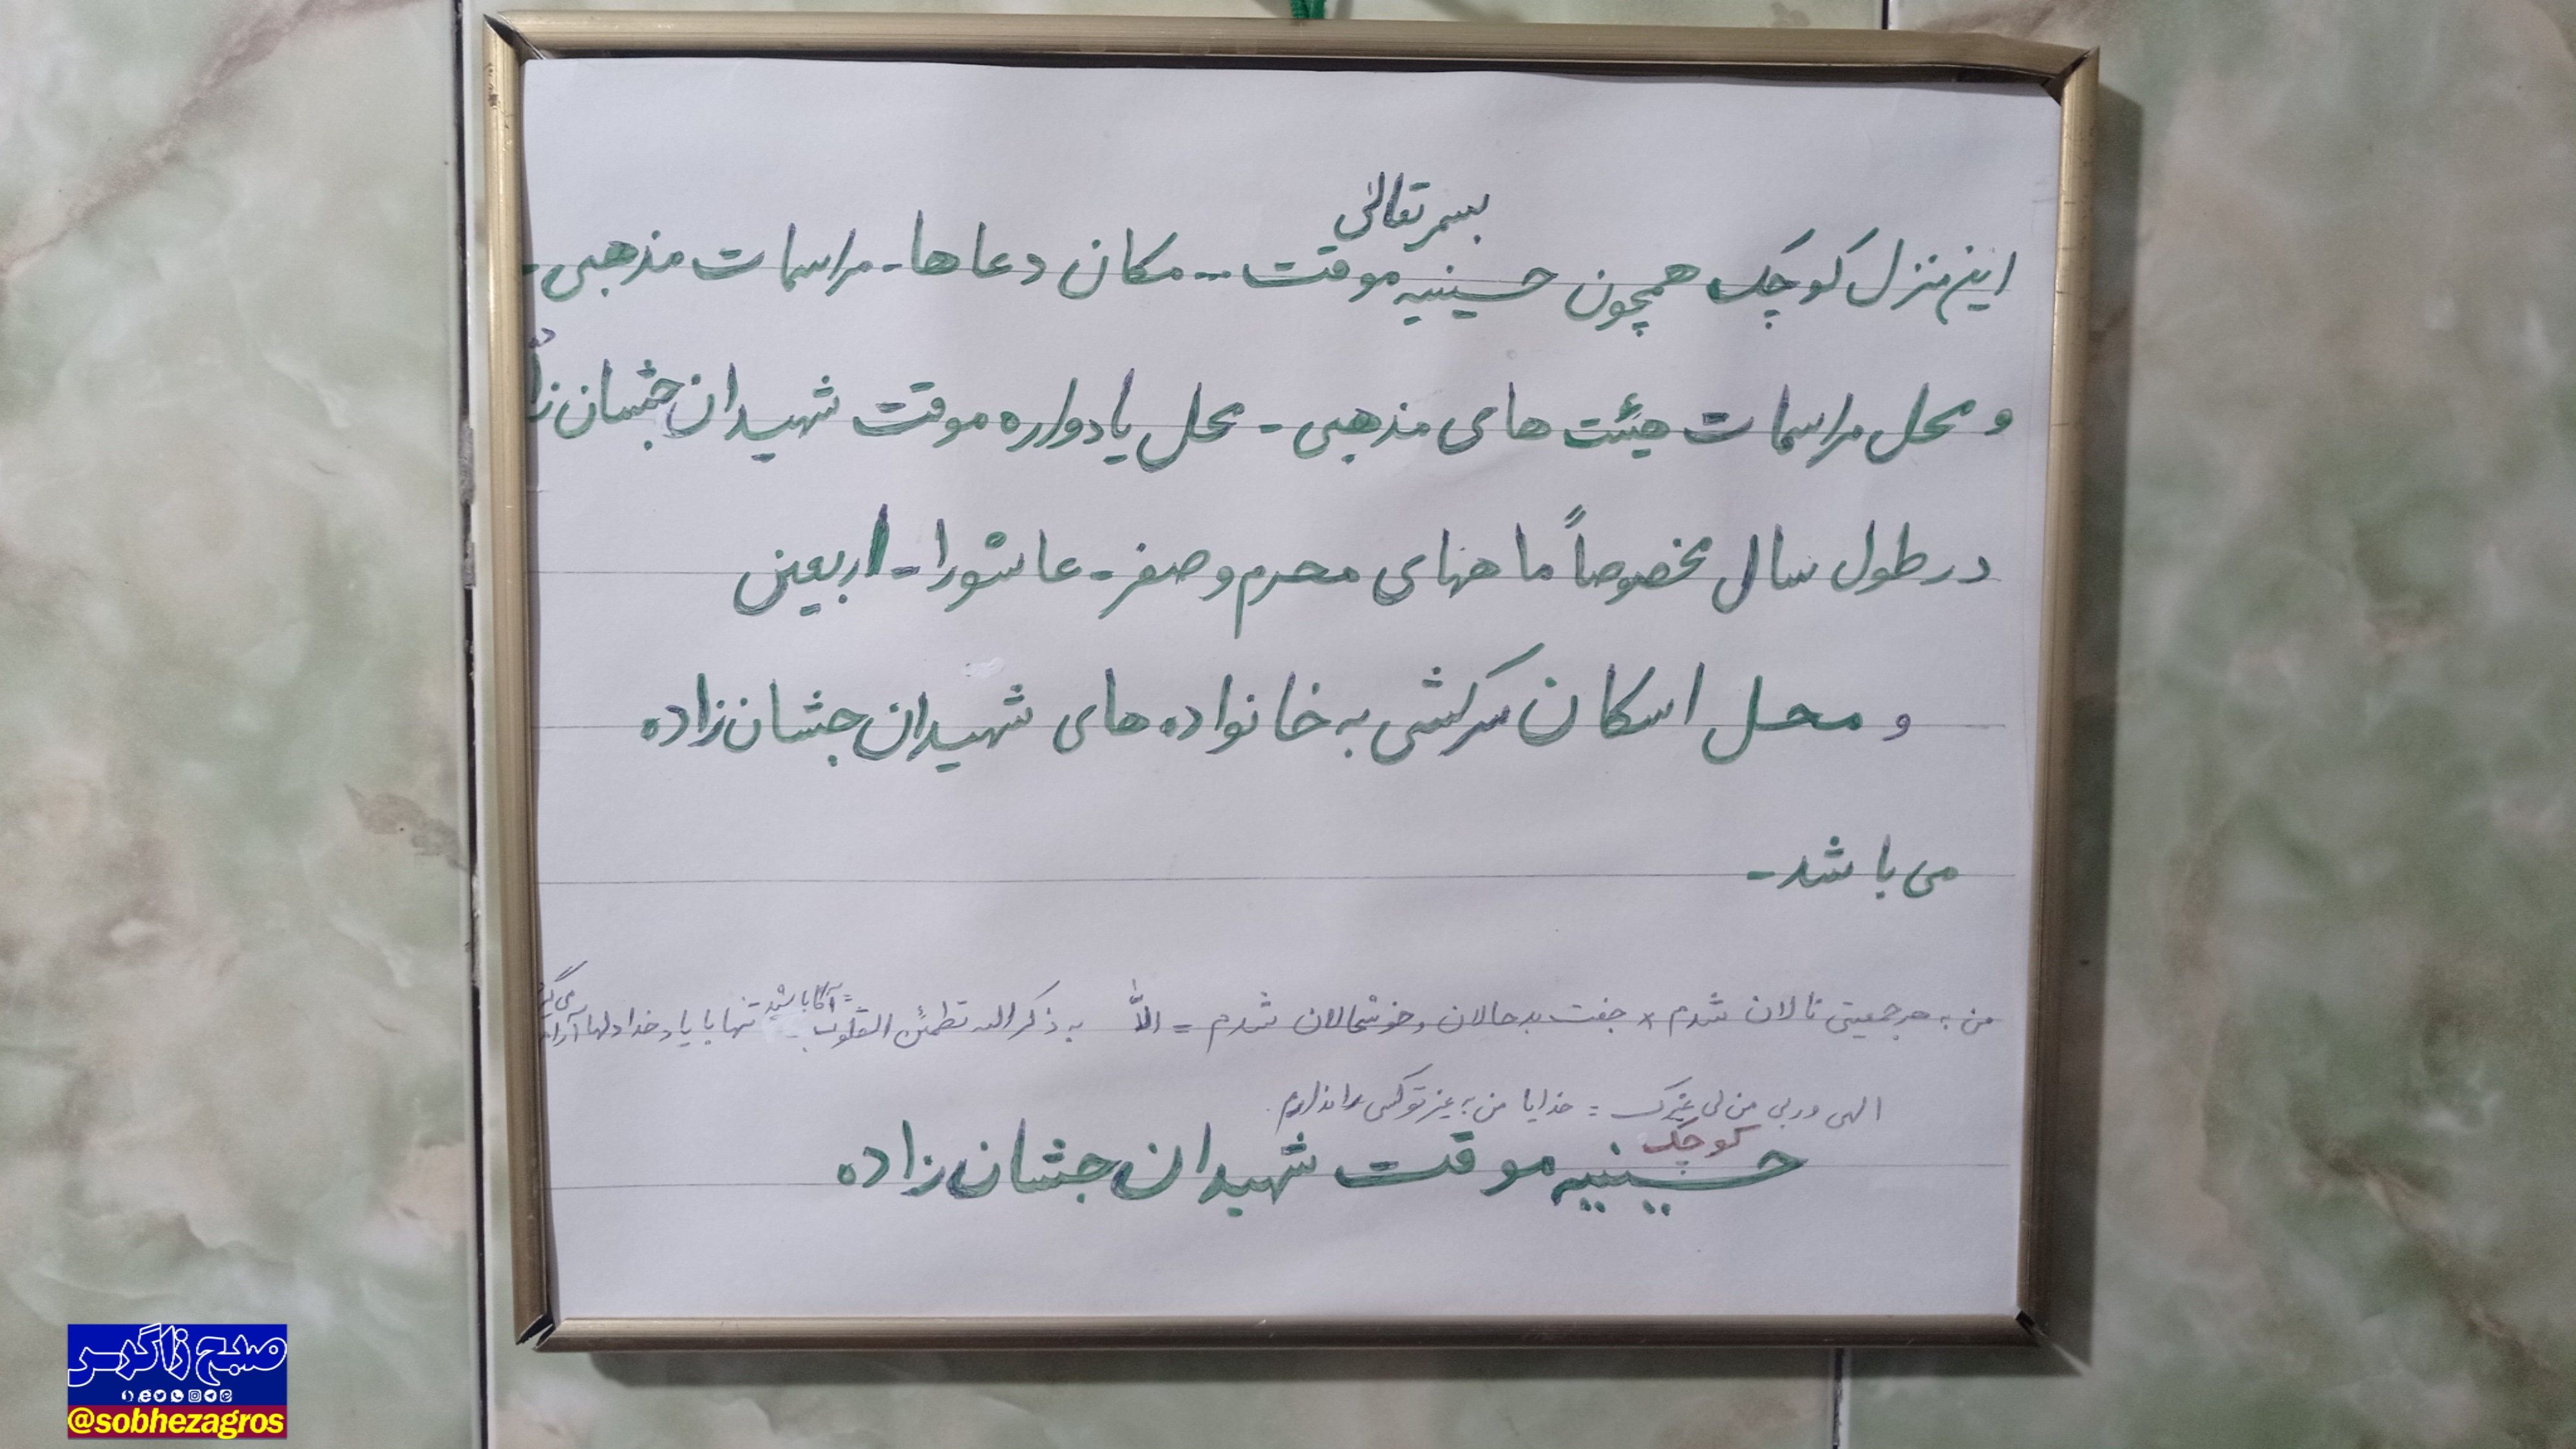 بسمه تعالی
این منزل کوچک همچون حسینیه موقت -- مکان دعاها - مراسمات مذهبی -
و محل مراسمات هیئت های مذهبی - محل یادواره موقت شهیدان جشان زاده
در طول سال مخصوصاً ماههای محرم و صفر - عاشورا - اربعین
و محل اسکان سرکشی به خانواده های شهیدان جشان زاده
می باشد -
من به هر جمعیتی نالان شدم * جفت بدحالان و خوشحالان شدم = الاّ به ذکر الله تطمئن القلوب = آگاه باشید تنها با یاد خدا دلها آرام
الهی و ربی من لی غیرک = خدایا من به غیر تو کسی را ندارم.
کوچک
حسینیه موقت شهیدان جشان زاده
صبح زاگرس
@sobhezagros